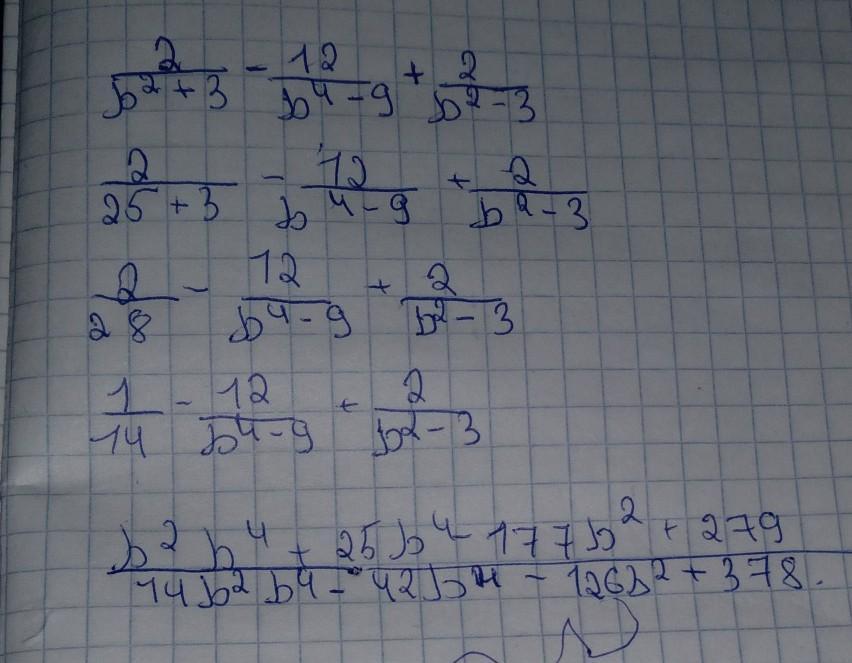 2/(b² + 3) - 12/(b⁴ - 9) + 2/(b² - 3)
2/(25 + 3) - 12/(b⁴ - 9) + 2/(b² - 3)
2/28 - 12/(b⁴ - 9) + 2/(b² - 3)
1/14 - 12/(b⁴ - 9) + 2/(b² - 3)
(b² b⁴ + 25b⁴ - 177b² + 279)/(14b² b⁴ - 42b⁴ - 126b² + 378.)